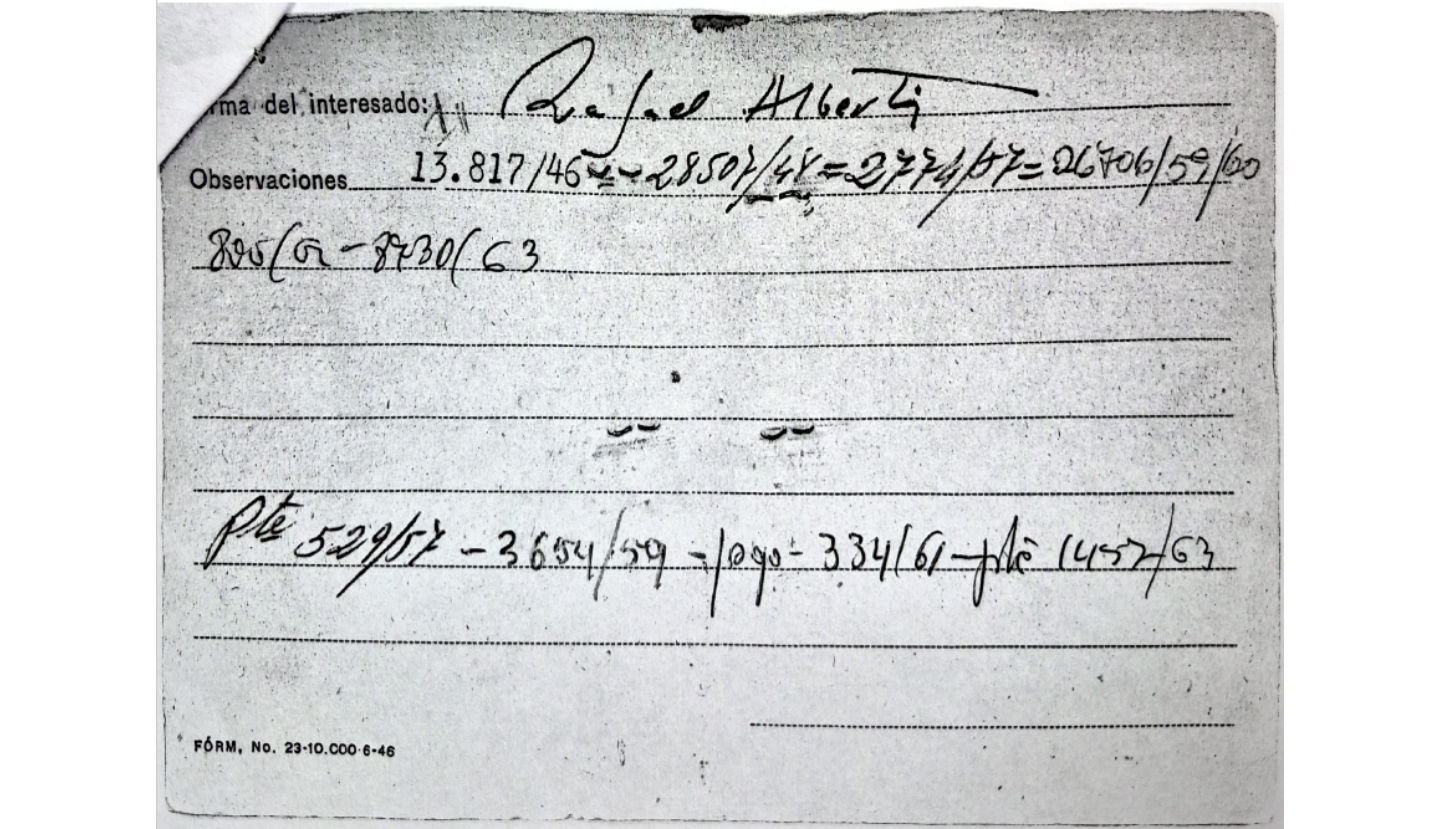 rma del interesado: Rafael Alberti
Observaciones 13.817/46 = - 28507/48 = 2774/57 = 26706/59/60
8730/63
Pte 529/57 - 3654/59 - 334/61 - pte 1457/63
FÓRM, No. 23-10.000-6-46